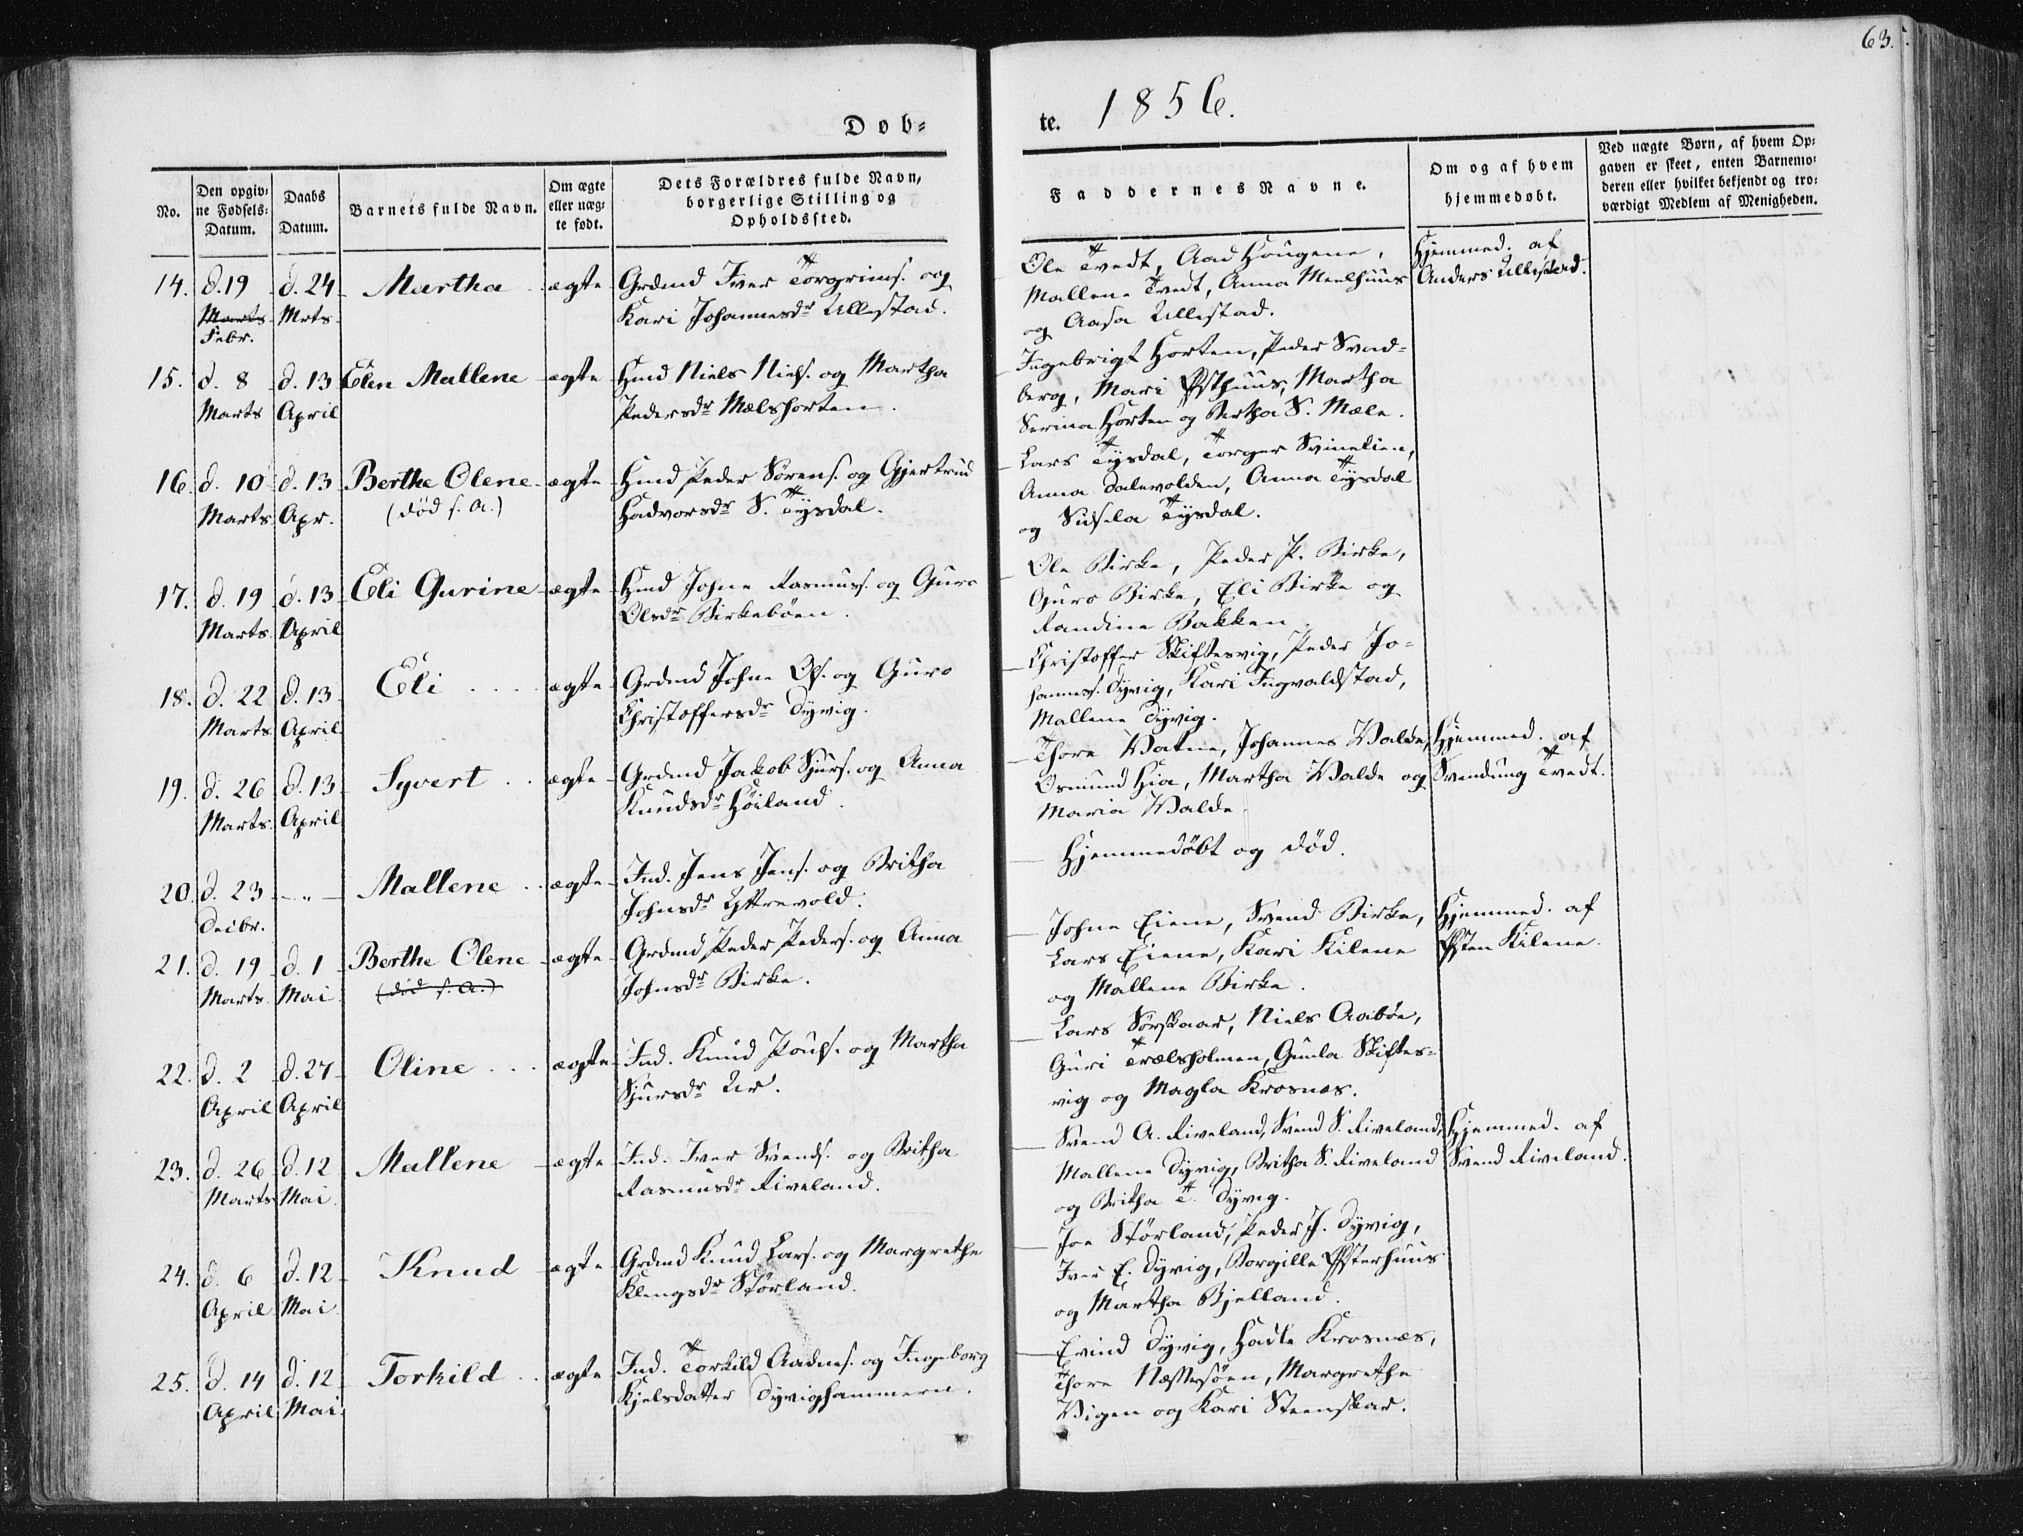 63.
Døb-
te. 1856.
No.
Den opgiv-
ne Fødsels-
Datum.
Daabs
Datum.
Barnets fulde Navn.
Om ægte
eller uæg-
te født.
Dets Forældres fulde Navn,
borgerlige Stilling og
Opholdssted.
Faddernes Navne.
Om og af hvem
hjemmedøbt.
Ved uægte Børn, af hvem Op-
gaven er skeet, enten Barnemo-
deren eller hvilket bekjendt og tro-
værdigt Medlem af Menigheden.
14. d. 19 Marts Febr. d. 24 Mrts. Martha ægte
Grdmd Iver Torgrims. og
Kari Johannesdr Ullestad.
Ole Tvedt, Aad Hougene,
Mallene Tvedt, Anna Meelhuus
og Aasa Ullestad.
Hjemmed. af
Anders Ullestad.
15. d. 8 Marts d. 13 April Elen Mallene ægte
Hmd Niels Niels. og Martha
Pedersdr Mælshorten.
Ingebrigt Horten, Peder Svad-
berg, Mari Østhuus, Martha
Serina Horten og Bertha S. Mæle.
16. d. 10 Marts d. 13 Apr. Berthe Olene ægte
(død s. A.)
Hmd Peder Sørens. og Gjertrud
Hadvorsdr S. Tysdal.
Lars Tysdal, Torger Svinelien,
Anna Dalevolden, Anna Tysdal
og Sidsela Tysdal.
17. d. 19 Marts d. 13 April Eli Gurine ægte
Hmd Johne Rasmuss. og Guro
Olsdr Birkebøen.
Ole Birke, Peder P. Birke,
Guro Birke, Eli Birke og
Randine Bakken
18. d. 22 Marts d. 13 April Eli . . . . ægte
Grdmd Johne Ols. og Guro
Christoffersdr Dyvig.
Christoffer Skiftesvig, Peder Jo-
hannes. Dyvig, Kari Ingvaldstad,
Mallene Dyvig.
19. d. 26 Marts d. 13 April Syvert . . ægte
Grdmd Jakob Sjurs. og Anna
Knudsdr Høiland.
Thore Watne, Johannes Walde,
Osmund Hia, Martha Walde og
Maria Walde
Hjemmed. af
Svendung Tvedt.
20. d. 23 Decbr. — " — Mallene . . ægte
Ind. Jens Jens. og Britha
Johnsdr Yttrevold.
Hjemmedøbt og død.
21. d. 19 Marts d. 1 Mai Berthe Olene ægte
(død s. A.)
Grdmd Peder Peders. og Anna
Johnsdr Birke.
Johne Eiene, Svend Birke,
Lars Eiene, Kari Kilene
og Mallene Birke.
Hjemmed. af
Østen Kilene.
22. d. 2 April d. 27 April Oline . . . ægte
Ind. Knud Pouls. og Martha
Sjursdr Ur.
Lars Sørskaar, Niels Aabøe,
Guri Trælsholmen, Gunla Skiftes-
vig og Magla Krosnæs.
23. d. 26 Marts d. 12 Mai Mallene ægte
Ind. Iver Svends. og Britha
Rasmusdr Riveland.
Svend A. Riveland, Svend S. Riveland,
Mallene Dyvig, Britha S. Riveland
og Britha T. Dyvig.
Hjemmed. af
Svend Riveland.
24. d. 6 April d. 12 Mai Knud ægte
Grdmd Knud Lars. og Margrethe
Klengsdr Størland.
Joe Størland, Peder J. Dyvig,
Iver E. Dyvig, Borgille Østerhuus
og Martha Bjelland.
25. d. 14 April d. 12 Mai Torkild . . ægte
Ind. Torkild Aadnes. og Ingeborg
Kjelsdatter Dyvighammeren.
Evind Dyvig, Hadle Krosnæs,
Thore Næssøen, Margrethe
Vigen og Kari Steenskar.